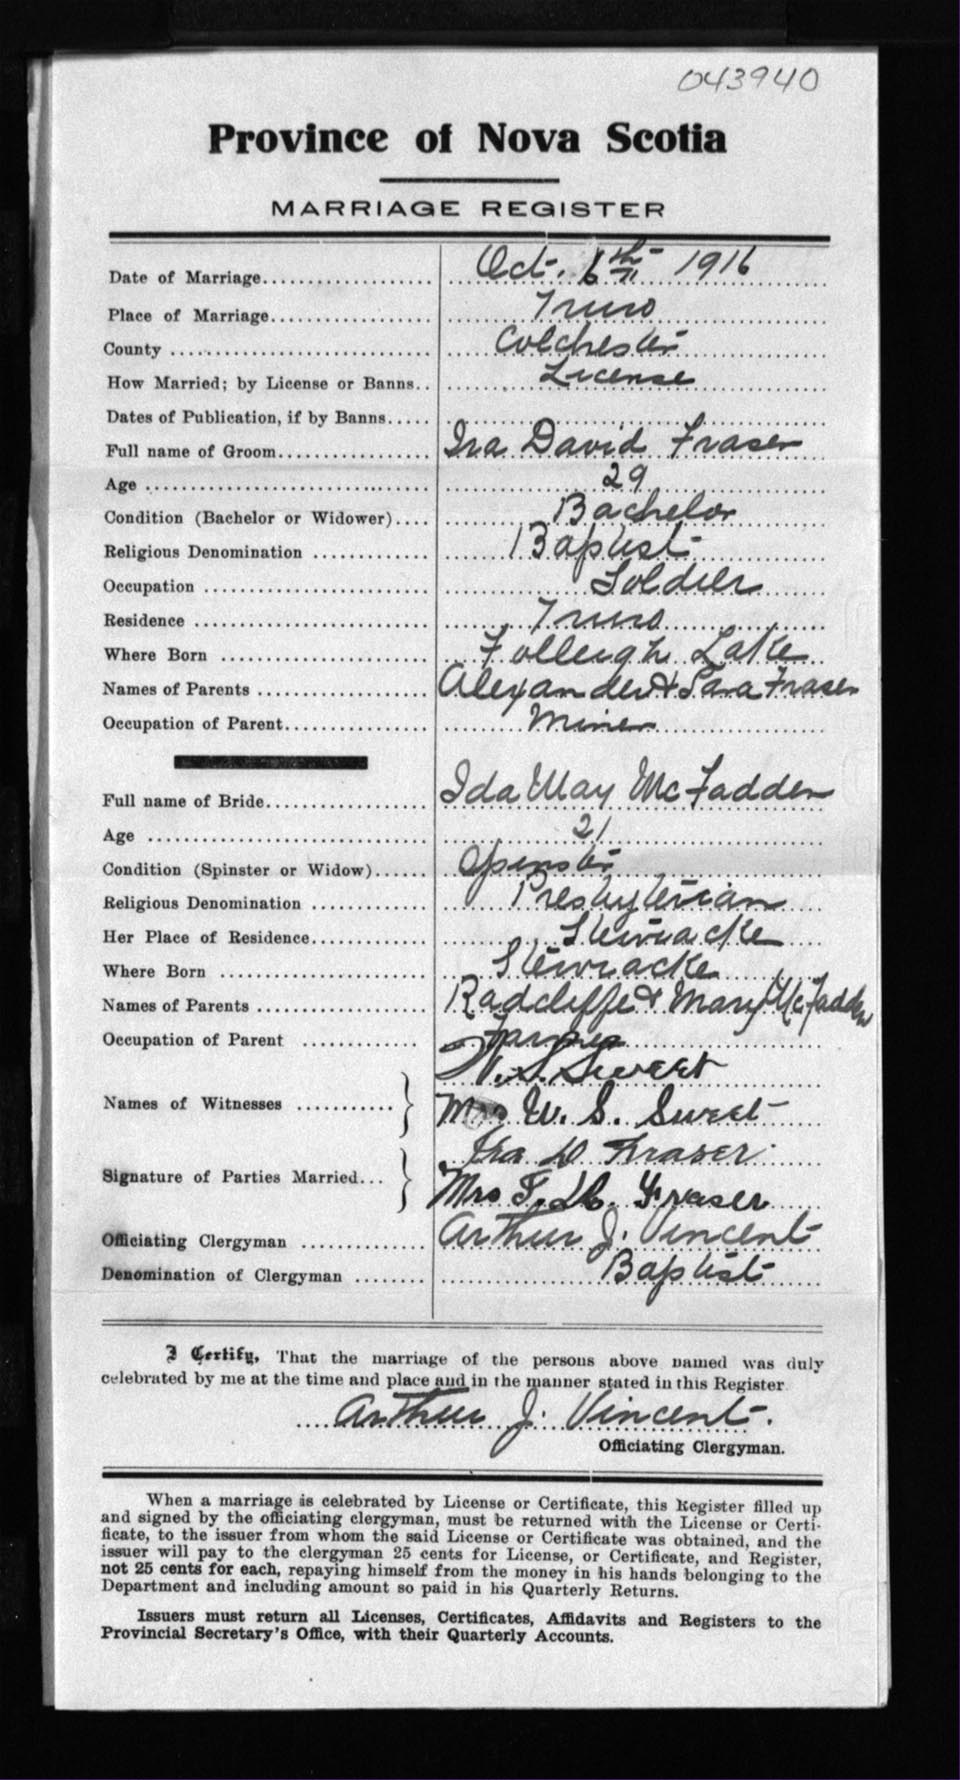 043940
Province of Nova Scotia
MARRIAGE REGISTER
Date of Marriage.................... Oct. 6th 1916
Place of Marriage................... Truro
County ............................. Colchester
How Married; by License or Banns.. License
Dates of Publication, if by Banns.....
Full name of Groom.................. Ira David Fraser
Age ................................ 29
Condition (Bachelor or Widower).... Bachelor
Religious Denomination ............. Baptist
Occupation ......................... Soldier
Residence .......................... Truro
Where Born ......................... Folleigh Lake
Names of Parents ................... Alexander & Sara Fraser
Occupation of Parent................ Miner
Full name of Bride.................. Ida May McFadden
Age ................................ 21
Condition (Spinster or Widow)...... Spinster
Religious Denomination ............. Presbyterian
Her Place of Residence............. Stewiacke
Where Born ......................... Stewiacke
Names of Parents ................... Radcliffe & Mary McFadden
Occupation of Parent ............. Farmer
W. S. Sweet
Names of Witnesses ........... Mrs W. S. Sweet
Ira D Fraser
Signature of Parties Married... Mrs Fraser
Officiating Clergyman .............. Arthur J. Vincent
Denomination of Clergyman ........ Baptist
I Certify, That the marriage of the persons above named was duly
celebrated by me at the time and place and in the manner stated in this Register
Arthur J. Vincent.
Officiating Clergyman.
When a marriage is celebrated by License or Certificate, this Register filled up
and signed by the officiating clergyman, must be returned with the License or Certi-
ficate, to the issuer from whom the said License or Certificate was obtained, and the
issuer will pay to the clergyman 25 cents for License, or Certificate, and Register,
not 25 cents for each, repaying himself from the money in his hands belonging to the
Department and including amount so paid in his Quarterly Returns.
Issuers must return all Licenses, Certificates, Affidavits and Registers to the
Provincial Secretary's Office, with their Quarterly Accounts.